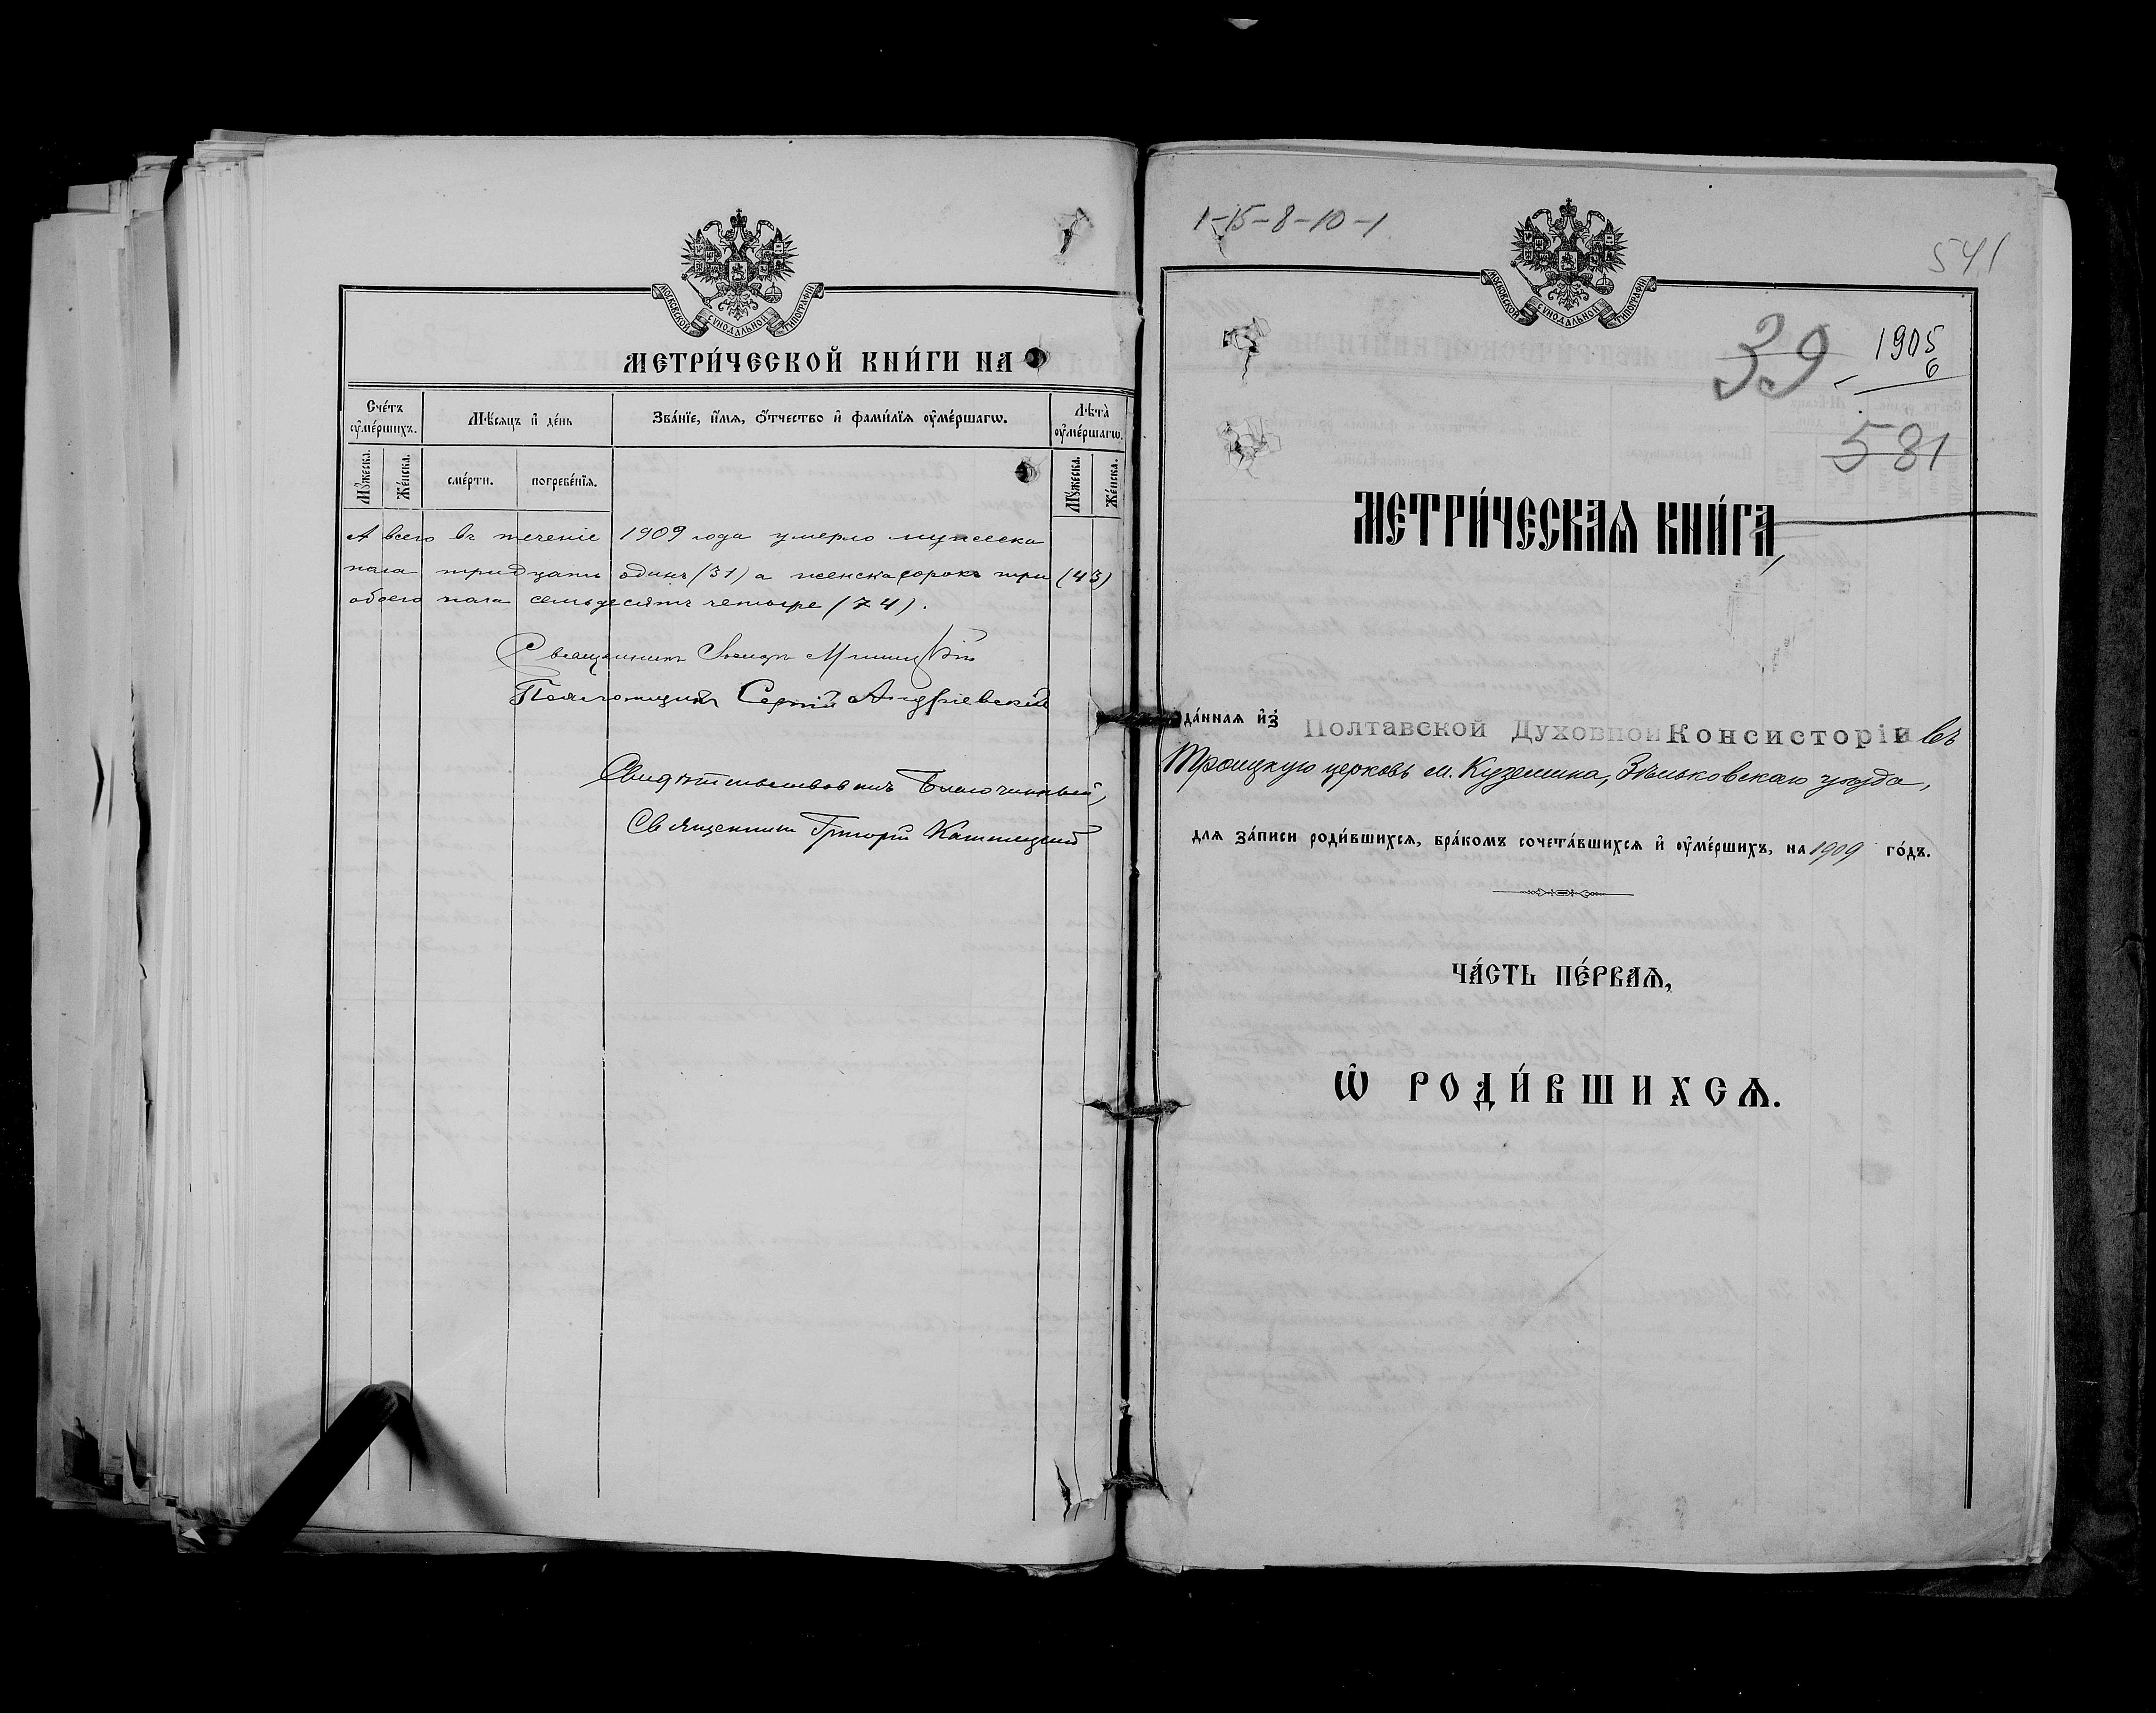 МОСКОВСКОЙ СѴНОДАЛЬНОЙ ТИПОГРАФІИ
МЕТРИ́ЧЕСКОЙ КНИ́ГИ НА
Счéтъ ᲂу҆мéршихъ.
Мѣ́сяцъ и҆ дéнь
Звáнїе, и҆́мѧ, ѻ҆́тчество и҆ фамѝлїѧ ᲂу҆мéршагѡ.
Лѣ́та ᲂу҆мéршагѡ.
Мꙋ́жеска.
Жéнска.
смéрти.
погребéнїѧ.
Мꙋ́жеска.
Жéнска.
А всего въ теченіе 1909 года умерло мужеска
пола тридцать одинъ (31) а женска сорокъ три (43)
обоего пола семьдесятъ четыре (74).
Священникъ
Псаломщикъ Сергій Андріевскій
Свидѣтельствовалъ Благочинный,
Священникъ Григорій
1-15-8-10-1
541
МОСКОВСКОЙ СѴНОДАЛЬНОЙ ТИПОГРАФІИ
39
1905
6
581
МЕТРИ́ЧЕСКАѦ КНИ́ГА,
дáннаѧ и҆з̾ Полтавской Духовной Консисторіи въ
Троицкую церковь м. Куземина, Зѣньковскаго уѣзда,
длѧ зáписи роди́вшихсѧ, брáкомъ сочетáвшихсѧ и҆ ᲂу҆мéршихъ, на 1909 гóдъ.
ЧÁСТЬ ПÉРВАѦ,
Ѡ҆ РОДИ́ВШИХСѦ.